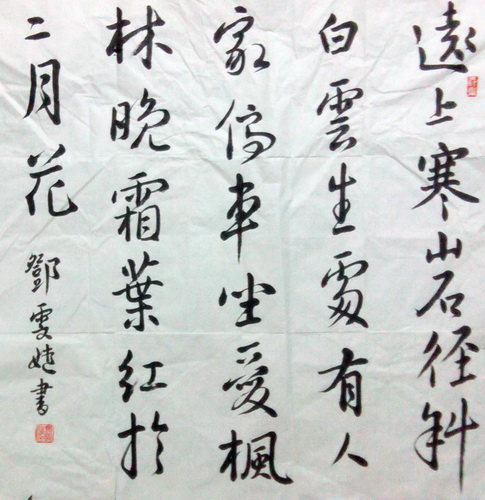 遠上寒山石径斜
白雲生處有人
家停車坐愛楓
林晚霜葉紅於
二月花
鄧雯婕書